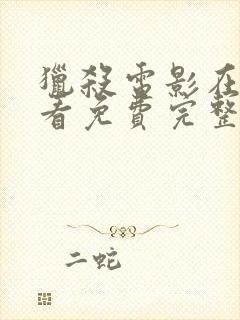 獵殺雷影在
看免費完整
二蛇